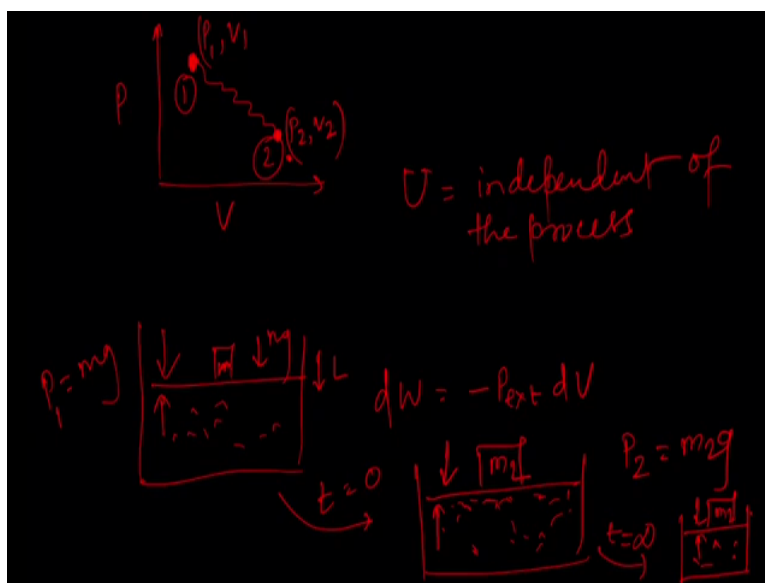 (P₁, V₁)
①
P
(P₂, V₂)
②
V
U = independent of
the process
P₁ = mg
m
mg
L
dW = -Pext dV
t = 0
m₂
P₂ = m₂g
t = ∞